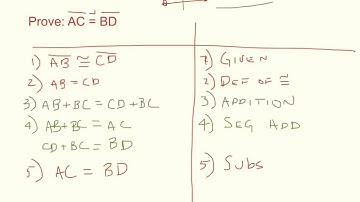 Prove: AC = BD
1) AB ≅ CD 1) GIVEN
2) AB = CD 2) DEF OF ≅
3) AB + BC = CD + BC 3) ADDITION
4) AB + BC = AC 4) SEG ADD
CD + BC = BD
5) AC = BD 5) SUBS